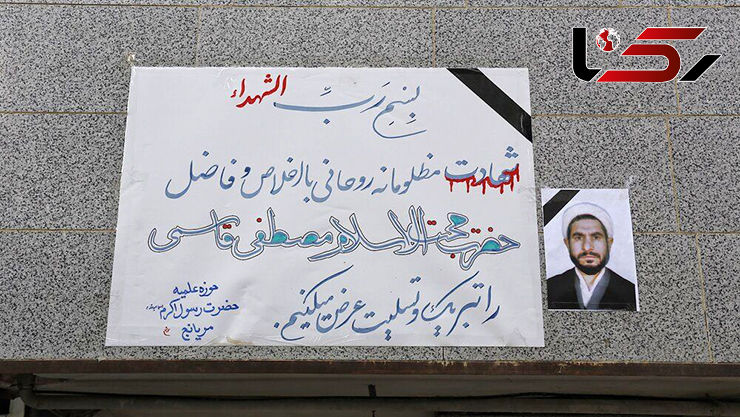 رکنا
بِسْمِ رَبِّ الشهداء
شهادت مظلومانه روحانی بااخلاص و فاضل
حضرت حجت الاسلام مصطفی قاسمی
را تبریک و تسلیت عرض میکنیم.
حوزه علمیه
حضرت رسول اکرم
مریانج